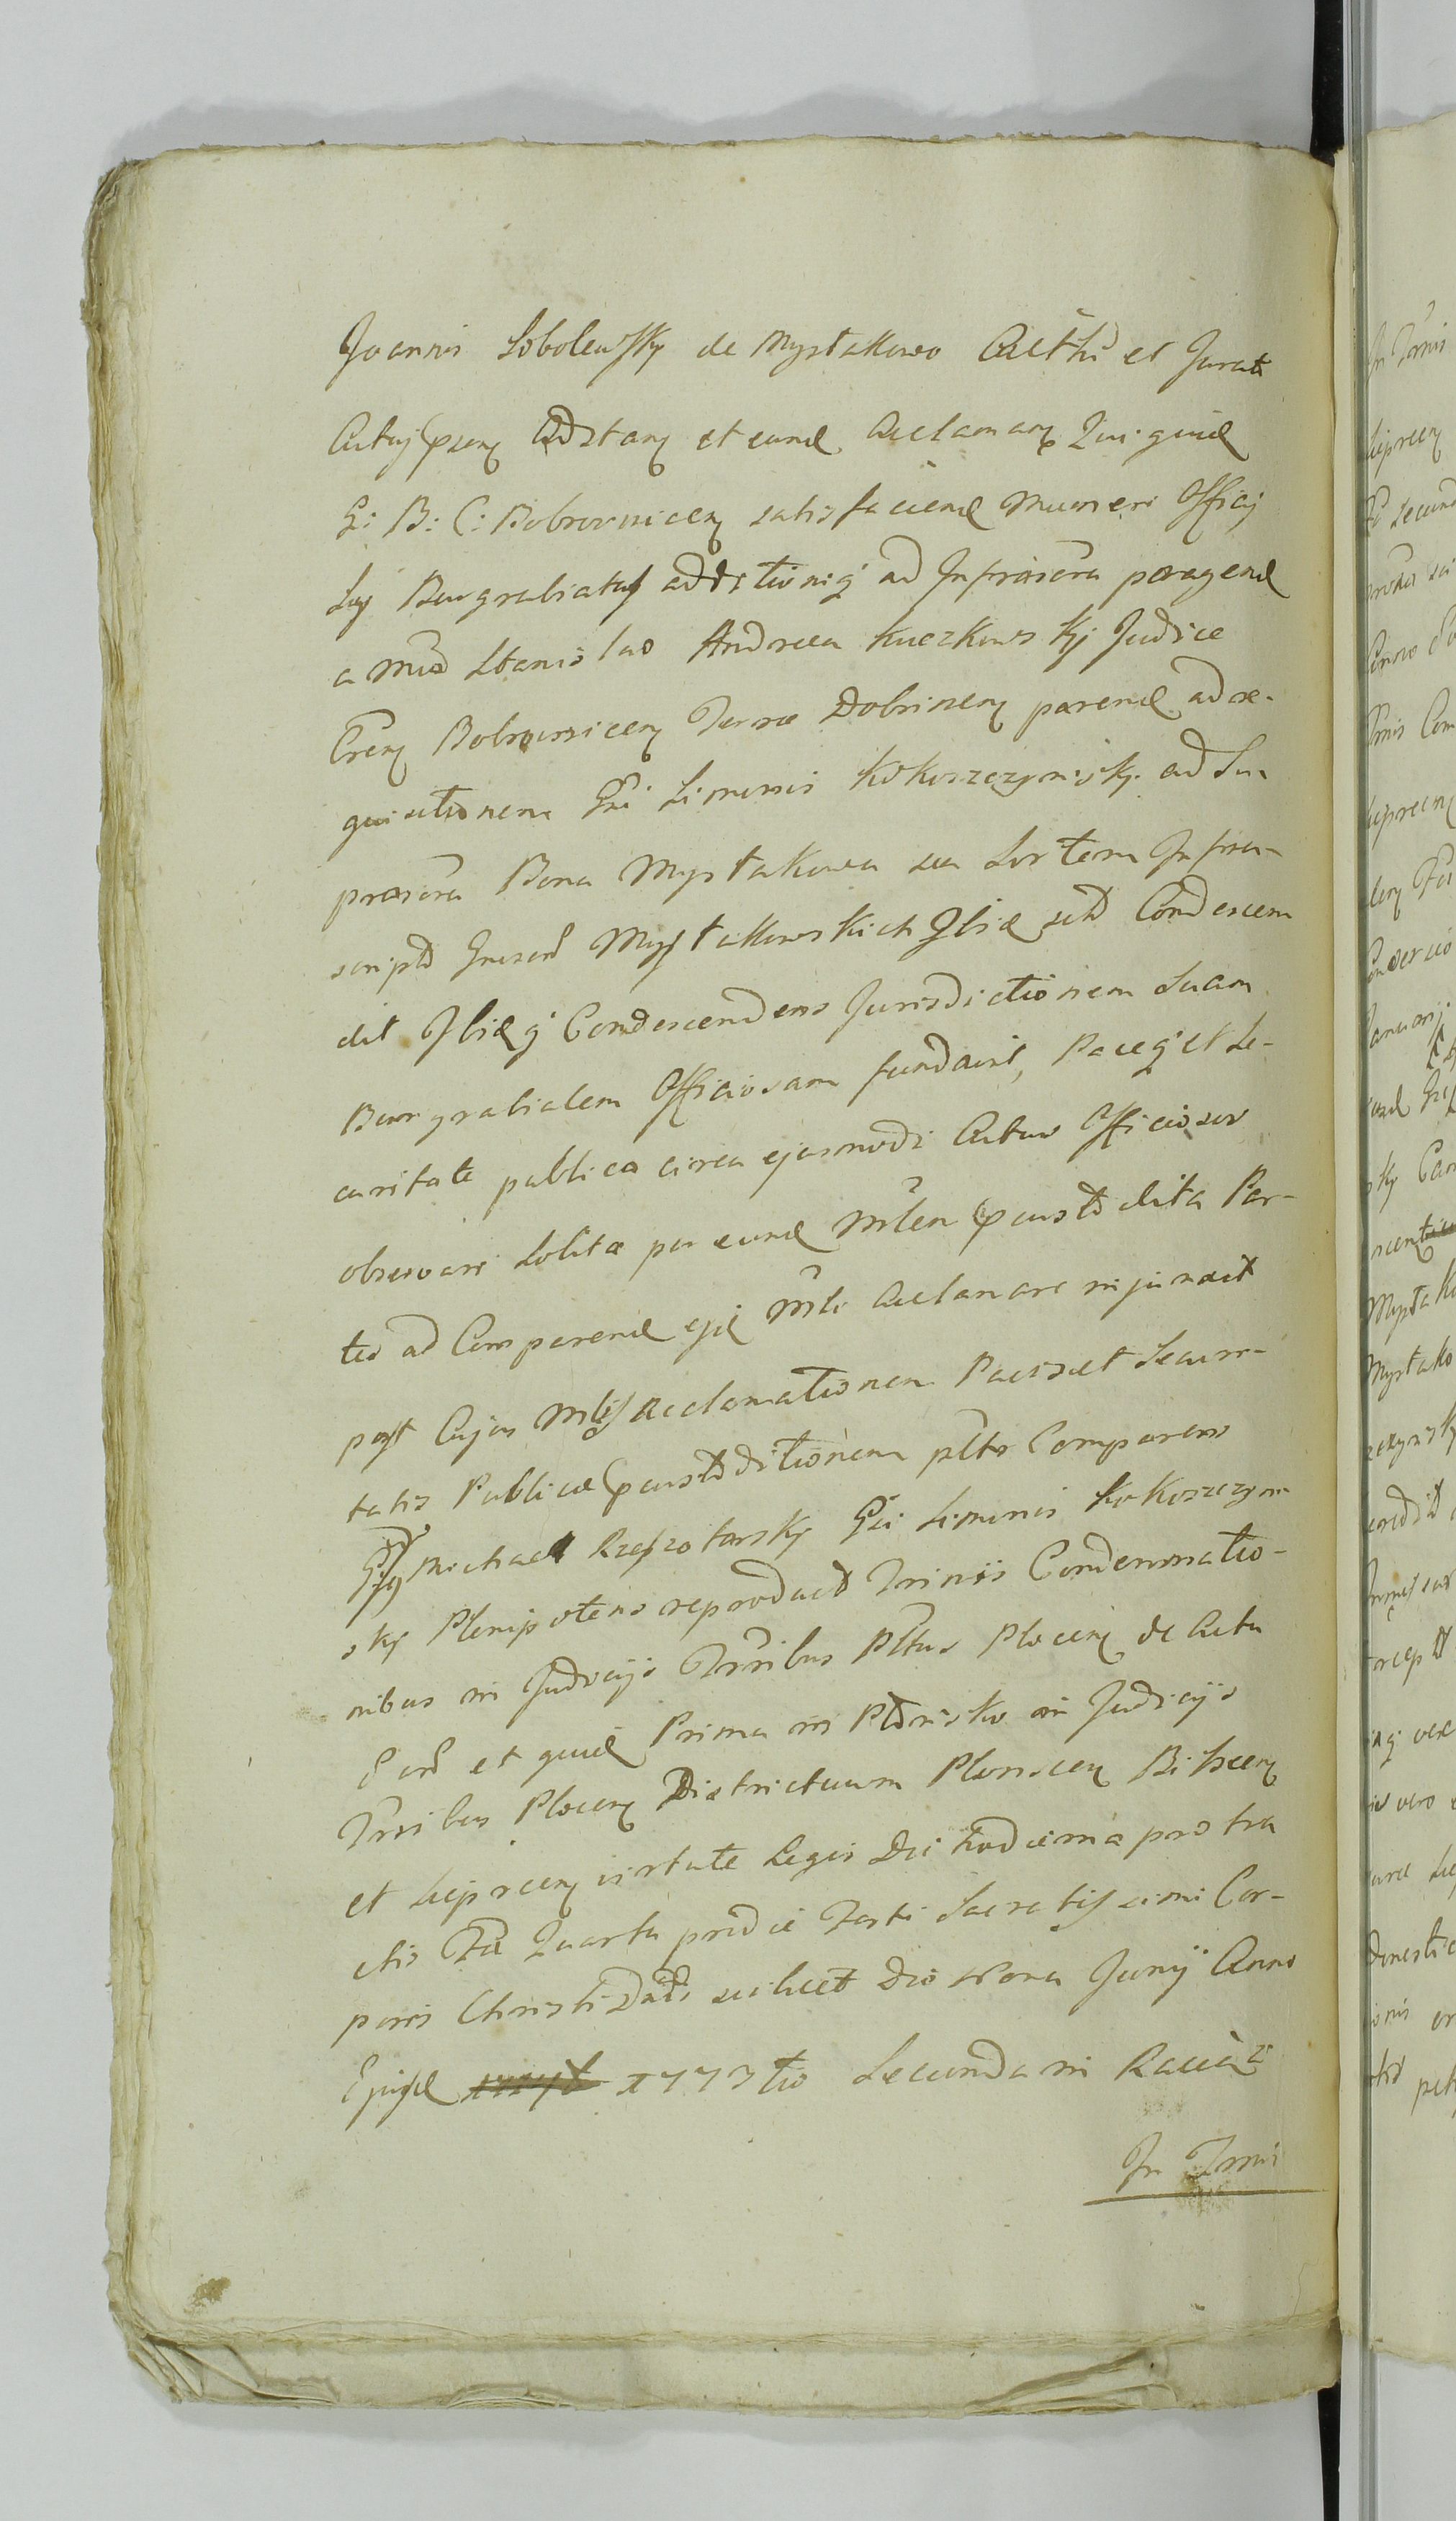 Joannis Sobolewsky de Mystkowo Aethi et Jurati
Actuj Psenȝ Adstanȝ et eund Acclamanȝ Qui quid
G: B: C: Bobrovnicenȝ satisfaciend Muneri Officij
Suj Burgrabiatus additioniq ad Infrascra peragend
a Mco Stanislao Andrea Kuczkowskj Judice
Crenȝ Bobrovnicenȝ Terrae Dobrinenȝ parend ad re-
quisitionem Gsi Simonis Kokoszczynskj ad Su-
prascra Bona Mystkowa seu Sortem Infra-
scripto Gneroso Mystkowskich Ibid scto Condescen
dit Ibidq Condescendens Jurisdictionem Suam
Burgrabialem Officiosam fundavit, Paceq et Se-
curitate publica circa ejusmodi Actus Officioso
observari Solita per eund Mlem Pcusto dita Par-
tes ad Comparend ejd Mli Acclamare injunxit
post Cujus Mlis Acclamationem Pacis et Securi-
tatis Publicae Pcustoditionem pltr Comparens
Gsus Michael Rzeszotarsky Gsi Simonis Kokoszczyn-
skj Plenipotens reproduct Trinis Condemnatio-
nibus in Judicijs Trribus Pltus Plocenȝ de Actu
et quid Prima in Płonsko in Judicijs
Trribus Plocenȝ Districtuum Plonscenȝ Bilscenȝ
et Sieprcenȝ virtute Legis Dei hodierna pro tra
ctis Fa Quarta pridie Festi Sacratissimi Cor-
poris Christi Dni scilicet Die Nona Junij Anno
Ejusd 1773tio Secunda in Raciąż
In Trmis